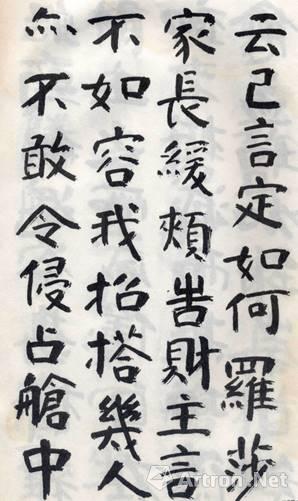 云已言定如何羅莎
家長緩頰告財主言
不如容我招搭幾人
亦不敢令侵占艙中
Artron.Net